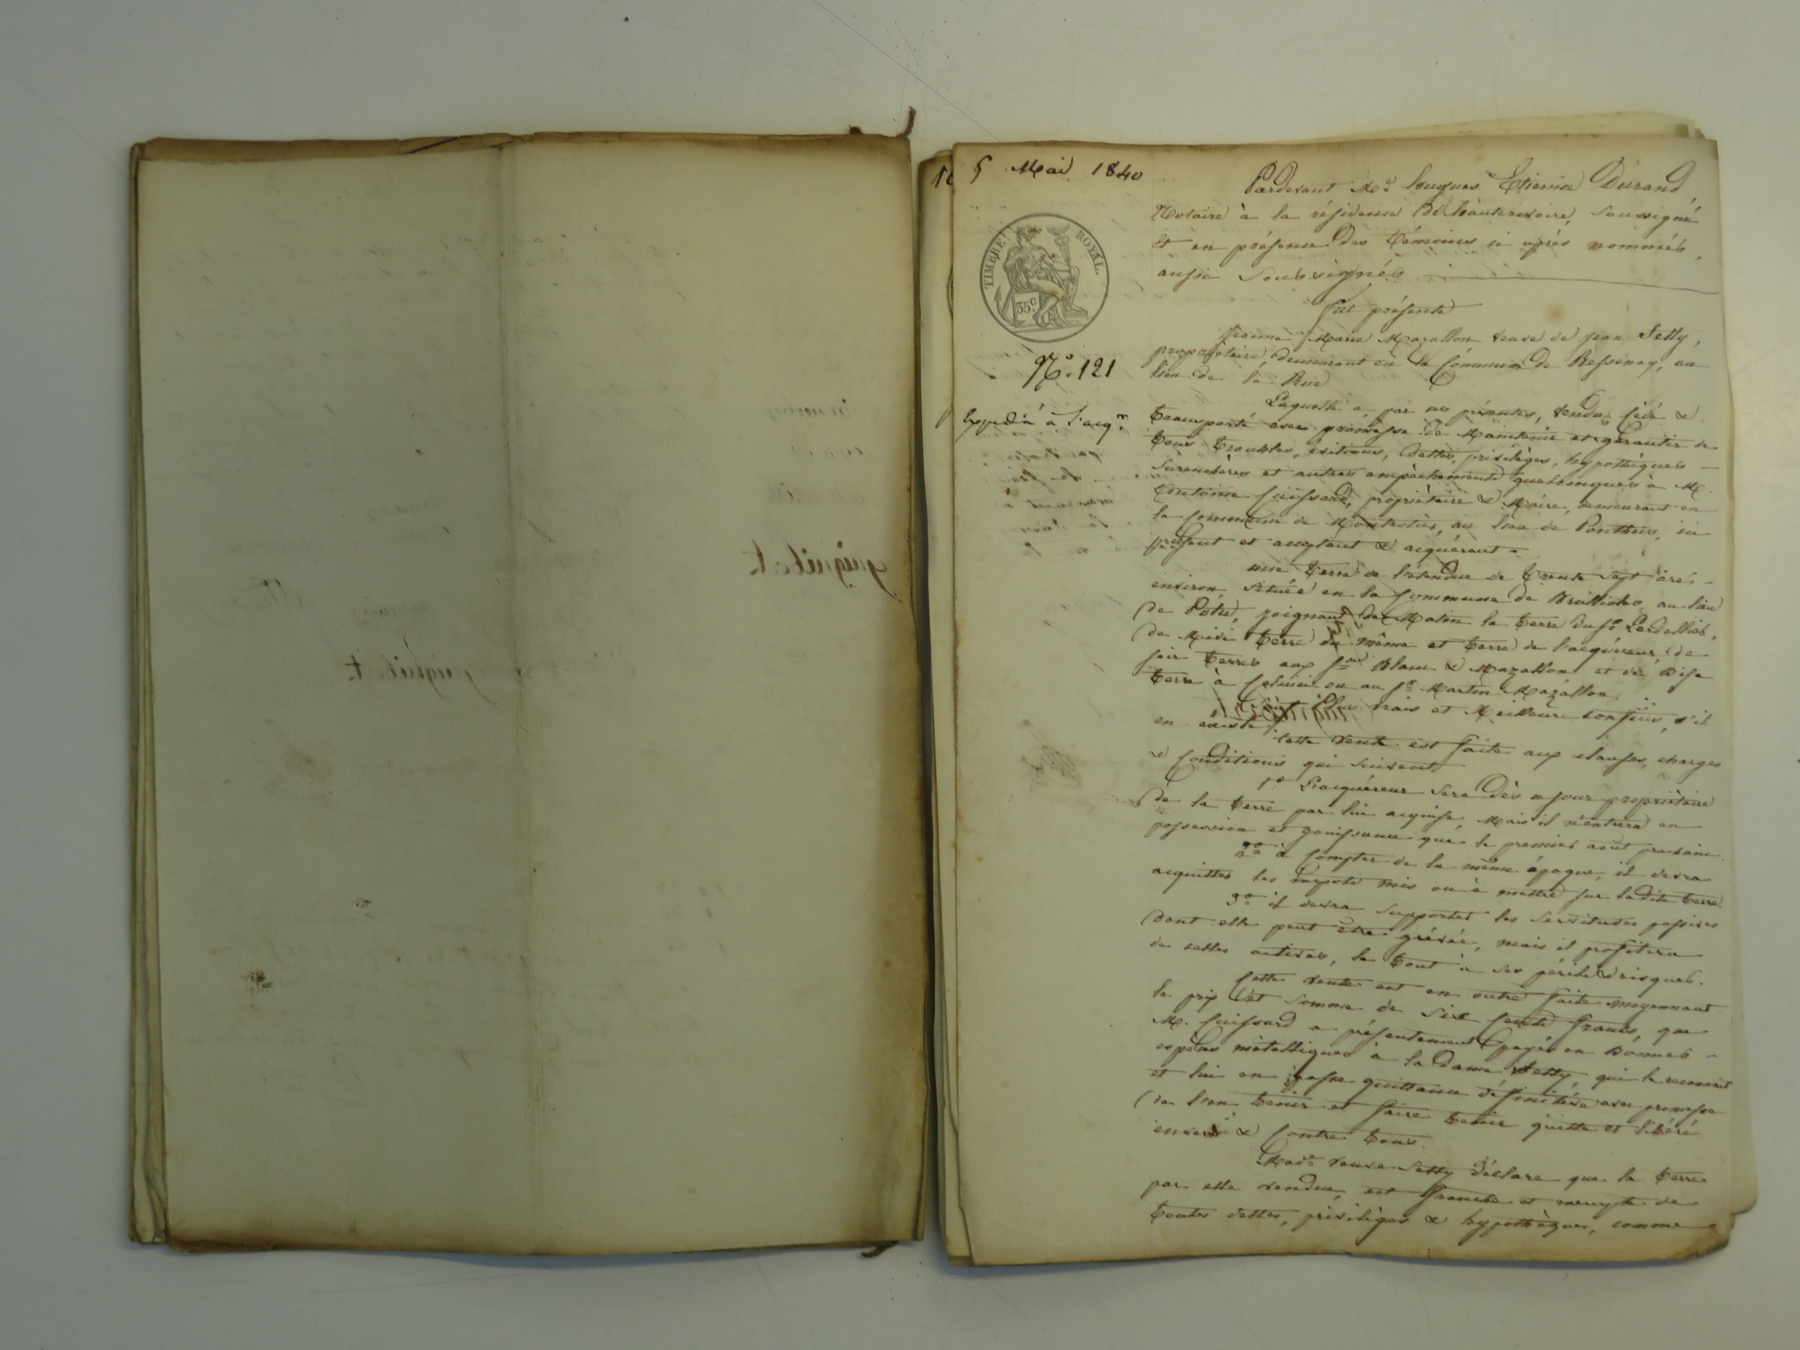 5 Mai 1840
TIMBRE ROYAL.
35 c
N.º 121
Expédié à l'acq.r
Pardevant Me. hugues Etienne Durand
Notaire à la résidence de hauterivoire, soussigné
Et en présence des témoins ci après nommés,
aussi soussignés
Fut présente
Jeanne Marie Mazallon veuve de jean Setty,
propriétaire, demeurant en la Commune de Bessenay, au
lieu de la Rue
Laquelle a par ces présentes, vendu, cédé &
transporté avec promesse de Maintenir et garantir de
tous troubles, évitions, dettes, privilèges, hypothèques
surenchères et autres empêchements quelconques à M.
Antoine Cuissard, propriétaire & Maire, demeurant en
la Commune de Montrotier, au lieu de Ponthus, ici
présent et acceptant & acquérant
une terre de l'étendue de trente sept ares
environ, située en la Commune de Brullioles, au lieu
de Potu, joignant de Matin la terre du sr.
de Midi terre du même et terre de l'acquéreur, de
soir terres aux srs Blanc & Mazallon et de Bise
terre à ou au sr. Martin Mazallon.
plus vrais et Meilleurs confins, s'il
en existe
Cette vente est faite aux clauses, charges
& Conditions qui suivent
1.º L'acquéreur sera dès ce jour propriétaire
de la terre par lui acquise, Mais il n'entrera en
possession et jouissance que le premier août prochain.
2.º à Compter de la même époque, il devra
acquitter les impots mis ou à mettre sur ladite terre
3.º il devra supporter les servitudes passives
dont elle peut être grévée, mais il profitera
de celles actives, le tout à ses périls & risques.
Cette vente est en outre faite moyennant
le prix et somme de six Cents francs, que
M. Cuissard a présentement payée en Bonnes
espèces métalliques à la Dame Setty, qui le reconnait
et lui en passe quittance définitive avec promesse
de l'en tenir et faire tenir quitte et libéré
envers & Contre tous.
Made veuve Setty déclare que la terre
par elle vendue, est franche et exempte de
toutes dettes, privilèges & hypothèques, comme